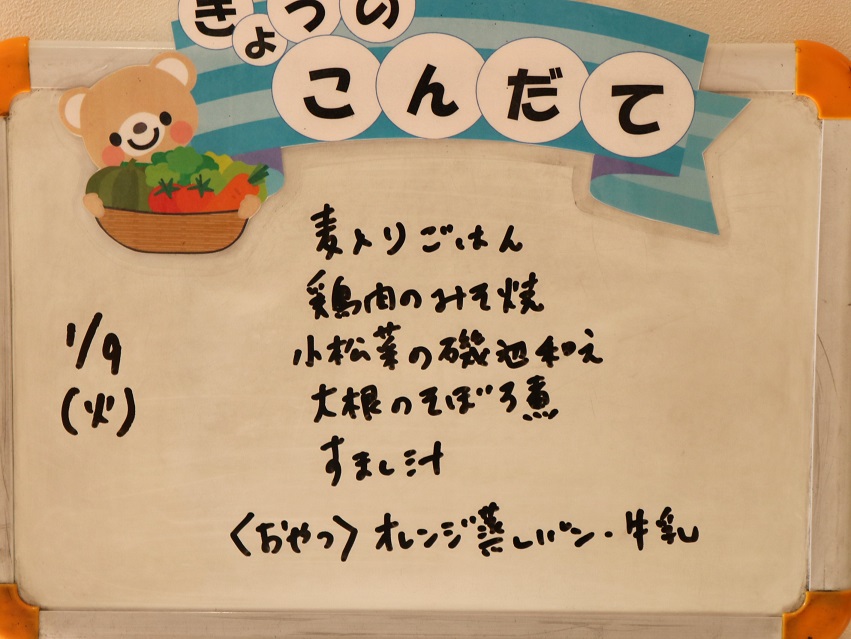 きょうの
こんだて
麦入りごはん
鶏肉のみそ焼
小松菜の磯辺和え
1/9
(火)
大根のそぼろ煮
すまし汁
〈おやつ〉オレンジ蒸しパン・牛乳